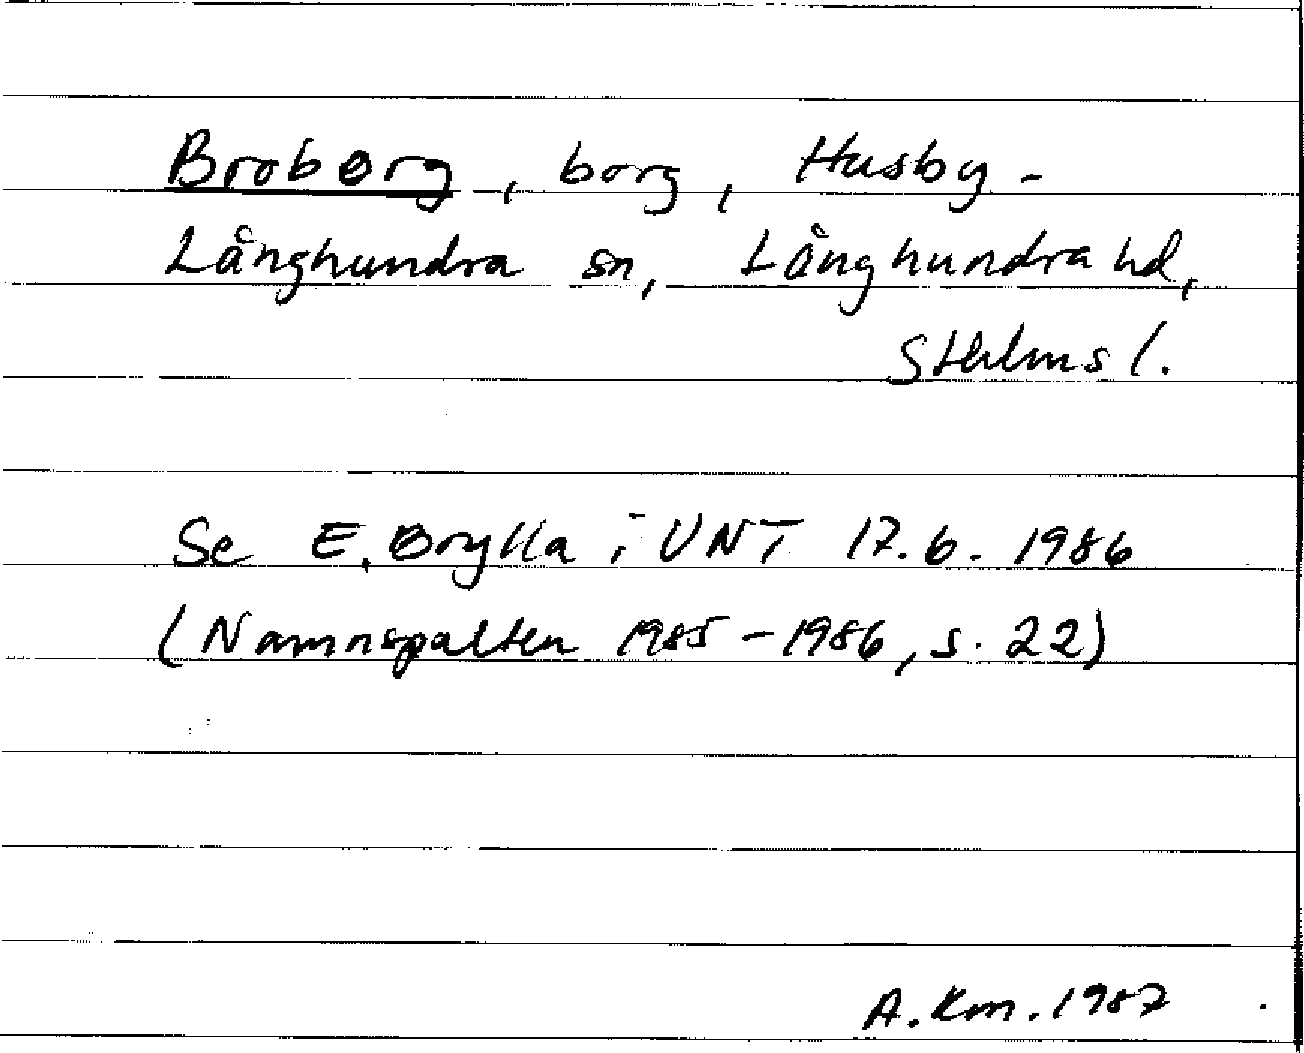 Broborg, borg, Husby-
Långhundra sn, Långhundra hd,
Sthlms l.
Se E. Brylla i UNT 17.6.1986
(Namnspalten 1985-1986, s. 22)
A.Km.1987